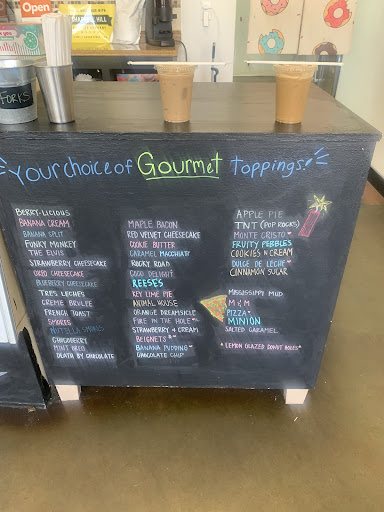 Open
FORKS
Your choice of Gourmet Toppings!
BERRY-LICIOUS
BANANA CREAM
BANANA SPLIT
FUNKY MONKEY
THE ELVIS
STRAWBERRY CHEESECAKE
OREO CHEESECAKE
BLUEBERRY CHEESECAKE
TRES LECHES
CREME BRULEE
FRENCH TOAST
S'MORES
NUTELLA S'MORES
CHOCOBERRY
MINT OREO
DEATH BY CHOCOLATE
MAPLE BACON
RED VELVET CHEESECAKE
COOKIE BUTTER
CARAMEL MACCHIATO
ROCKY ROAD
COCO DELIGHT
REESES
KEY LIME PIE
ANIMAL HOUSE
ORANGE DREAMSICLE
FIRE IN THE HOLE
STRAWBERRY & CREAM
BEIGNETS
BANANA PUDDING
CHOCOLATE CHIP
APPLE PIE
TNT (POP ROCKS)
MONTE CRISTO
FRUITY PEBBLES
COOKIES N CREAM
DULCE DE LECHE
CINNAMON SUGAR
MISSISSIPPI MUD
M & M
PIZZA
MINION
SALTED CARAMEL
*LEMON GLAZED DONUT HOLES*